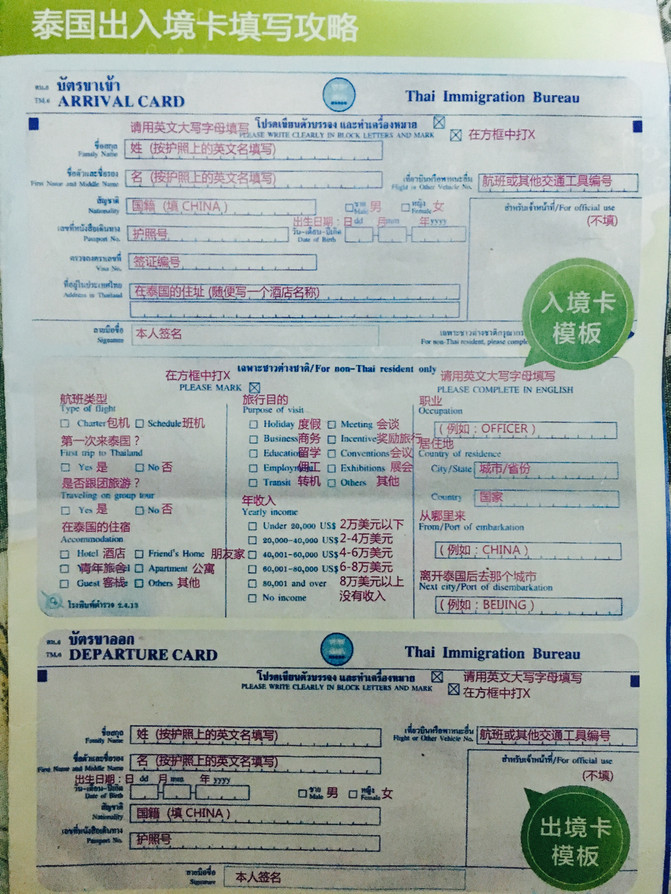 泰国出入境卡填写攻略
ตม.6 บัตรขาเข้า
TM.6 ARRIVAL CARD
Thai Immigration Bureau
请用英文大写字母填写 โปรดเขียนตัวบรรจง และทำเครื่องหมาย
PLEASE WRITE CLEARLY IN BLOCK LETTERS AND MARK
在方框中打X
ชื่อสกุล
Family Name
姓 (按护照上的英文名填写)
ชื่อตัวและชื่อรอง
First Name and Middle Name
名 (按护照上的英文名填写)
เที่ยวบินหรือพาหนะอื่น
Flight or Other Vehicle No.
航班或其他交通工具编号
สัญชาติ
Nationality
国籍 (填 CHINA )
ชาย
Male 男
หญิง
Female 女
สำหรับเจ้าหน้าที่/For official use
(不填)
เลขที่หนังสือเดินทาง
Passport No.
护照号
出生日期：日 dd 月 mm 年 yyyy
วัน-เดือน-ปีเกิด
Date of Birth
ตรวจลงตราเลขที่
Visa No.
签证编号
ที่อยู่ในประเทศไทย
Address in Thailand
在泰国的住址 (随便写一个酒店名称)
入境卡
模板
ลายมือชื่อ
Signature
本人签名
เฉพาะชาวต่างชาติกรุณากรอก
For non-Thai resident, please comple
เฉพาะชาวต่างชาติ/For non-Thai resident only
在方框中打X
PLEASE MARK
请用英文大写字母填写
PLEASE COMPLETE IN ENGLISH
航班类型
Type of flight
Charter 包机 Schedule 班机
第一次来泰国？
First trip to Thailand
Yes 是 No 否
是否跟团旅游？
Traveling on group tour
Yes 是 No 否
在泰国的住宿
Accommodation
Hotel 酒店 Friend's Home 朋友家
青年旅舍 Apartment 公寓
Guest 客栈 Others 其他
โรงพิมพ์ตำรวจ 2.4.13
旅行目的
Purpose of visit
Holiday 度假 Meeting 会谈
Business 商务 Incentive 奖励旅行
Education 留学 Conventions 会议
Employment 佣工 Exhibitions 展会
Transit 转机 Others 其他
年收入
Yearly income
Under 20,000 US$ 2万美元以下
20,000-40,000 US$ 2-4万美元
40,001-60,000 US$ 4-6万美元
60,001-80,000 US$ 6-8万美元
80,001 and over 8万美元以上
No income 没有收入
职业
Occupation
( 例如：OFFICER )
居住地
Country of residence
City/State 城市/省份
Country 国家
从哪里来
From/Port of embarkation
( 例如：CHINA )
离开泰国后去那个城市
Next city/Port of disembarkation
( 例如：BEIJING )
ตม.6 บัตรขาออก
TM.6 DEPARTURE CARD
Thai Immigration Bureau
โปรดเขียนตัวบรรจง และทำเครื่องหมาย
PLEASE WRITE CLEARLY IN BLOCK LETTERS AND MARK
请用英文大写字母填写
在方框中打X
ชื่อสกุล
Family Name
姓 (按护照上的英文名填写)
เที่ยวบินหรือพาหนะอื่น
Flight or Other Vehicle No.
航班或其他交通工具编号
ชื่อตัวและชื่อรอง
First Name and Middle Name
名 (按护照上的英文名填写)
สำหรับเจ้าหน้าที่/For official use
(不填)
出生日期：日 dd 月 mm 年 yyyy
วัน-เดือน-ปีเกิด
Date of Birth
ชาย
Male 男
หญิง
Female 女
สัญชาติ
Nationality
国籍 (填 CHINA )
เลขที่หนังสือเดินทาง
Passport No.
护照号
出境卡
模板
ลายมือชื่อ
Signature
本人签名